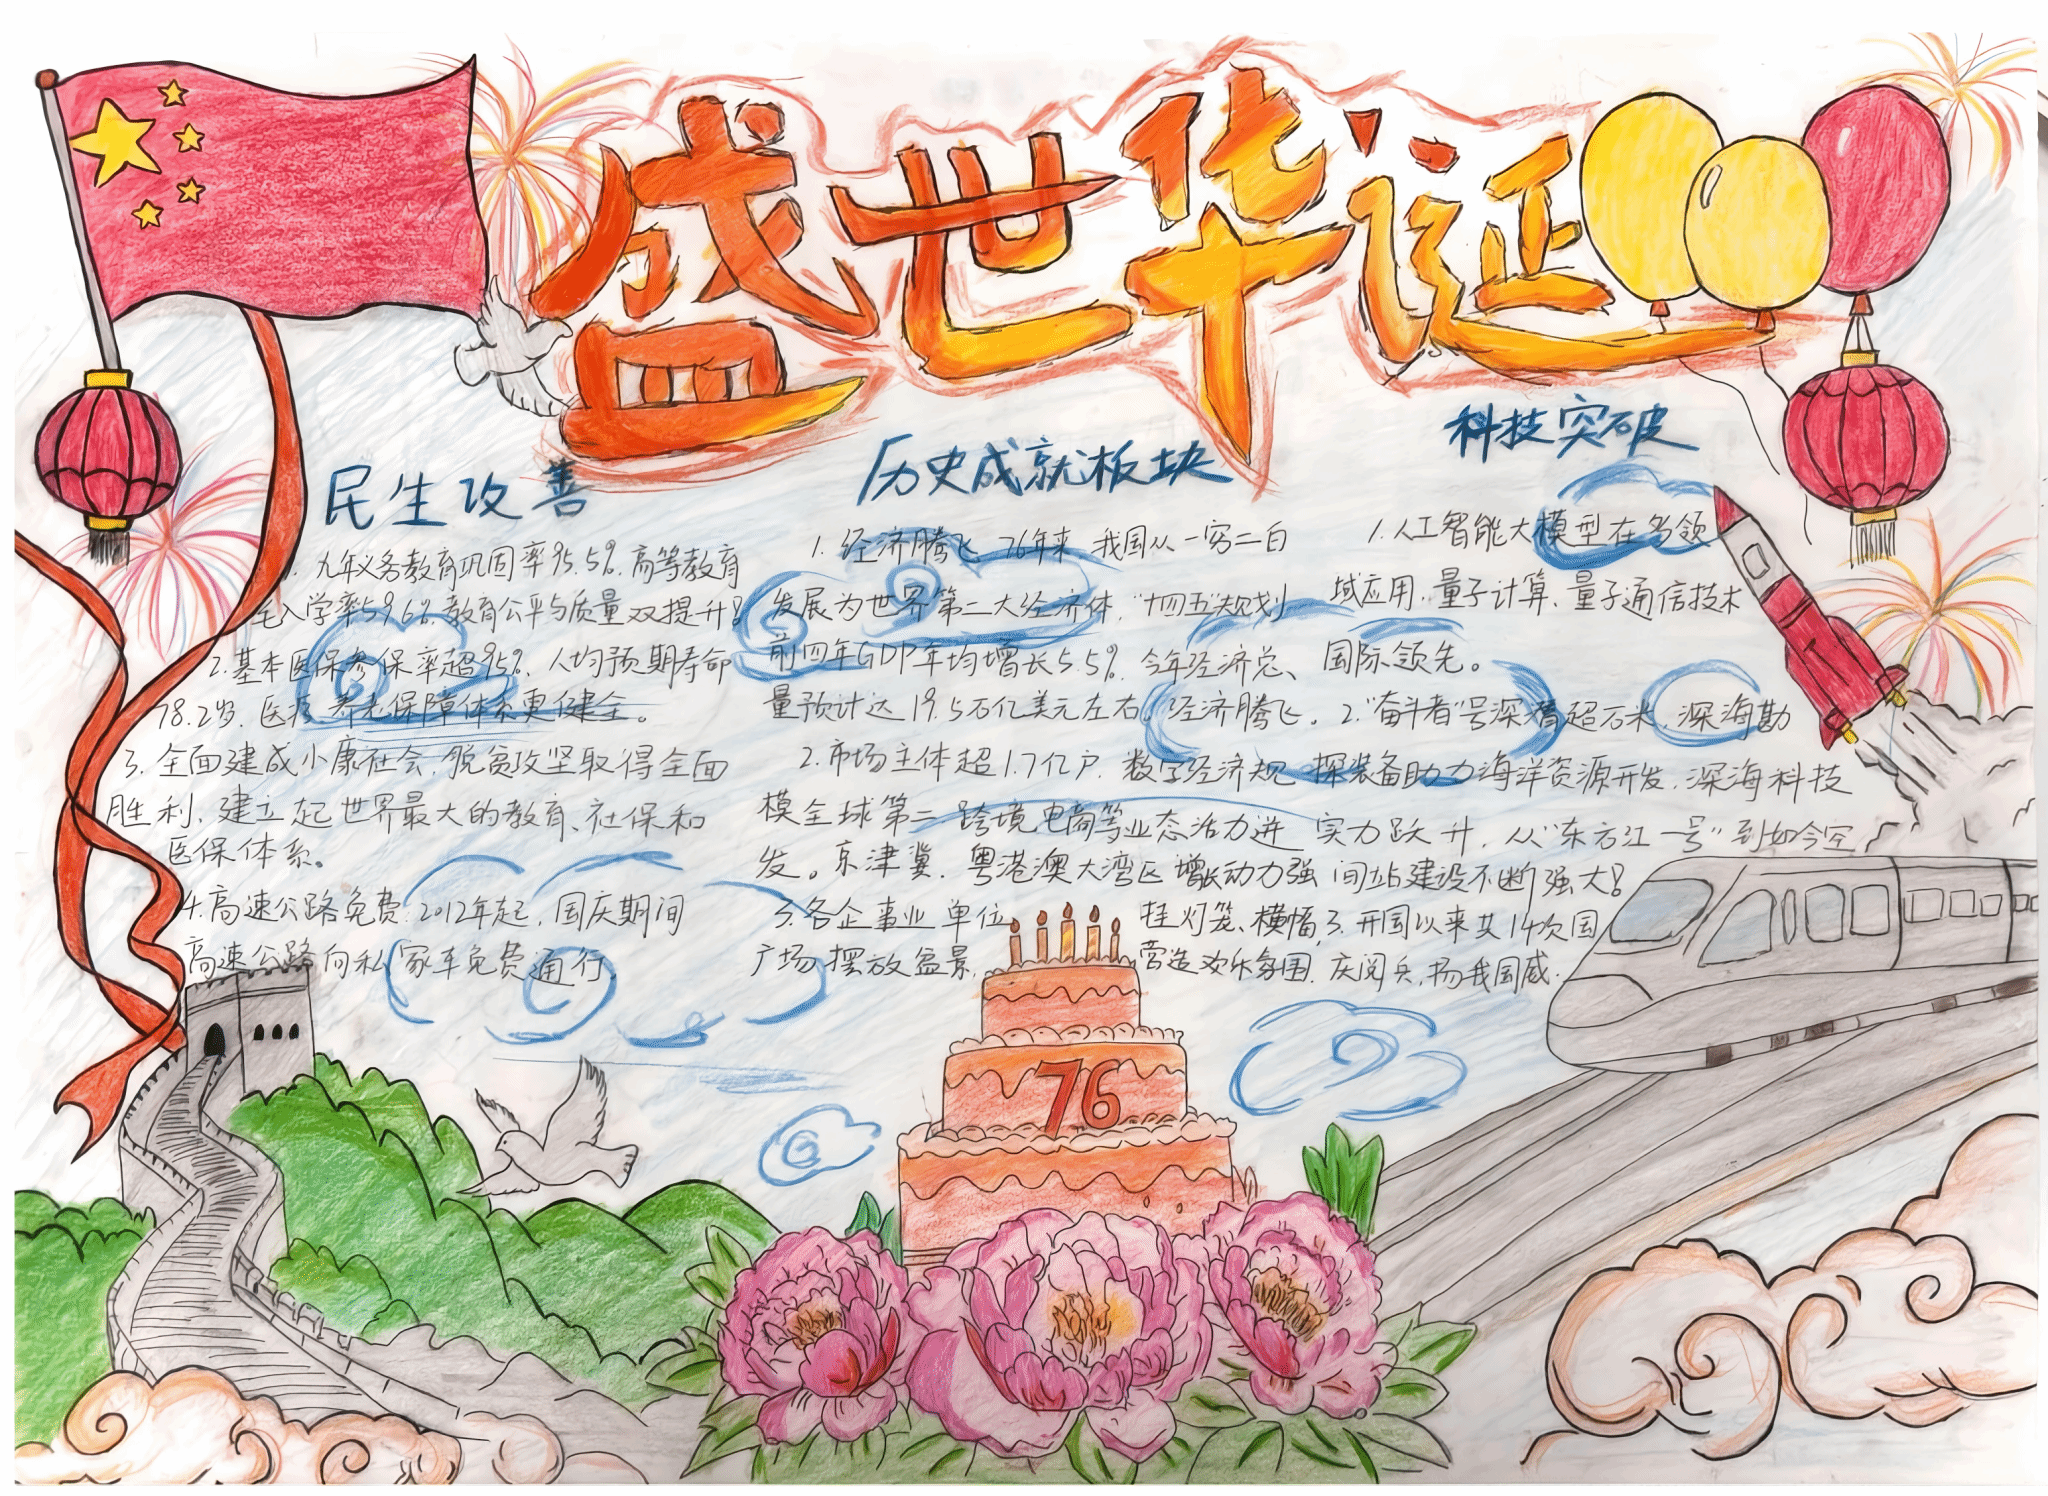 盛世华诞
民生改善
1. 九年义务教育巩固率95.5%,高等教育
毛入学率59.6%,教育公平与质量双提升!
2.基本医保参保率超95%、人均预期寿命
78.2岁,医疗,养老保障体系更健全。
3.全面建成小康社会,脱贫攻坚取得全面
胜利、建立起世界最大的教育、社保和
医保体系。
4.高速公路免费:2012年起,国庆期间
高速公路向私家车免费通行
历史成就板块
1. 经济腾飞 76年来 我国从一穷二白
发展为世界第二大经济体,"十四五"规划
前四年GDP年均增长5.5%,今年经济总
量预计达19.5万亿美元左右,经济腾飞。
2.市场主体超1.7亿户,数字经济规
模全球第二 跨境电商等业态活力迸
发。京津冀,粤港澳大湾区增长动力强
3.各企事业单位 挂灯笼、横幅,
广场摆放盆景, 营造欢乐氛围.
科技突破
1.人工智能大模型在多领
域应用,量子计算、量子通信技术
国际领先。
2."奋斗者"号深潜超万米,深海勘
探装备助力海洋资源开发,深海科技
实力跃升,从"东方红一号"到如今空
间站建设不断强大!
3.开国以来共14次国
庆阅兵,扬我国威.
76